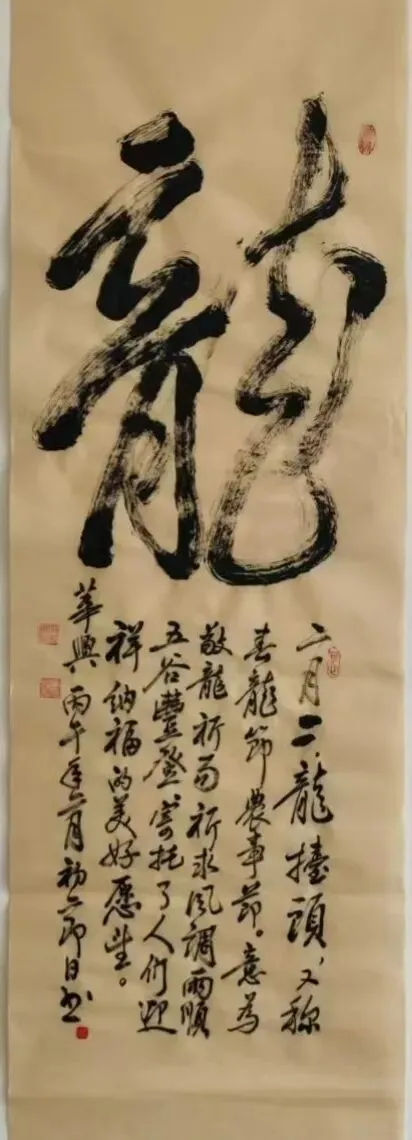 龍
二月二，龍擡頭，又称
春龍節農事節。意為
敬龍祈雨祈求風調雨順
五谷豐登寄托了人们迎
祥纳福的美好愿望。
華興丙午年二月初二節日书